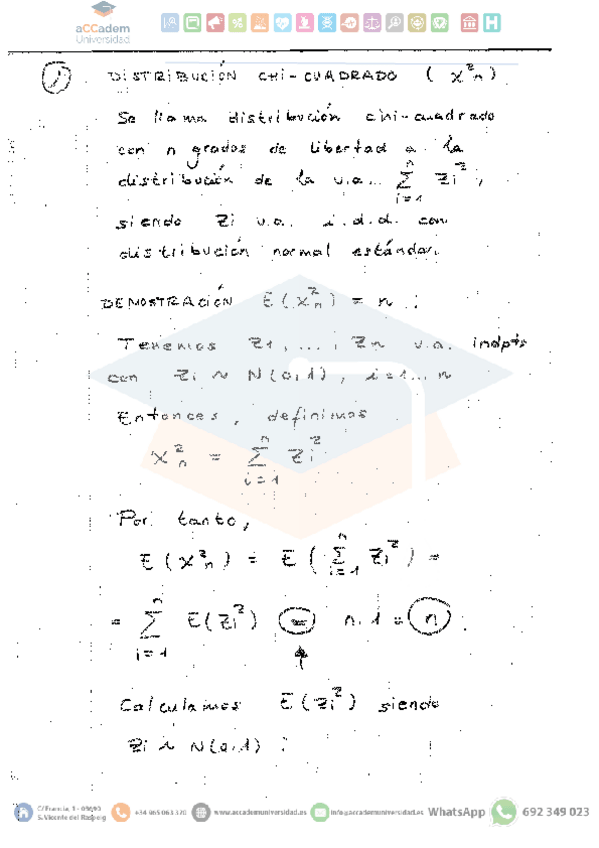 aCCadem
Universidad
① DISTRIBUCIÓN CHI-CUADRADO (X²n)
Se llama distribución chi-cuadrado
con n grados de libertad a la
distribución de la v.a. Σ(i=1→n) Zi²,
siendo Zi v.a. i.d.d. con
distribución normal estándar.
DEMOSTRACIÓN E(X²n) = n :
Tenemos Z1, ..., Zn v.a. indpts
con Zi ~ N(0,1), i=1...n
Entonces, definimos
X²n = Σ(i=1→n) Zi²
Por tanto,
E(X²n) = E(Σ(i=1→n) Zi²) =
= Σ(i=1→n) E(Zi²) = n.1 = n
↑
Calculamos E(Zi²) siendo
Zi ~ N(0,1) :
C/ Francia, 1 - 03690
S. Vicente del Raspeig
+34 965 063 170
www.accademuniversidad.es
info@accademuniversidad.es
WhatsApp 692 349 023